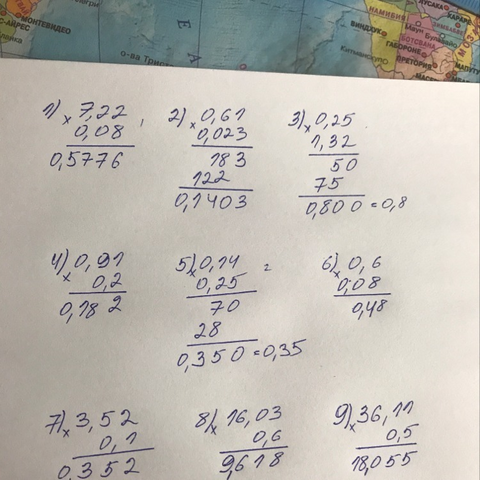 МОНТЕВИДЕО
о-ва Три
НАМИБИЯ
ВИНДХУК
БОТСВАНА
ГАБОРОНЕ
ПРЕТОРИЯ
1) × 7,22
0,08
0,5776
2) × 0,61
0,023
183
122
0,1403
3) × 0,25
1,32
50
75
0,800 = 0,8
4) × 0,91
0,2
0,182
5) × 0,14
0,25
70
28
0,350 = 0,35
6) × 0,6
0,08
0,48
7) × 3,52
0,1
0,352
8) × 16,03
0,6
9,618
9) × 36,11
0,5
18,055